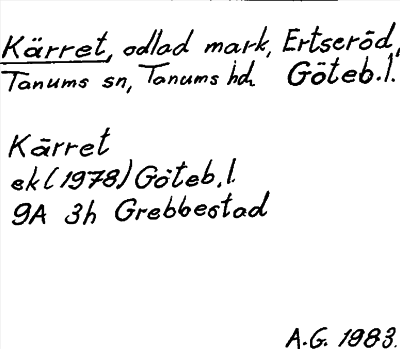 Kärret, odlad mark, Ertseröd,
Tanums sn, Tanums hd Göteb.l.
Kärret
ek (1978) Göteb.l.
9A 3h Grebbestad
A.G. 1983.